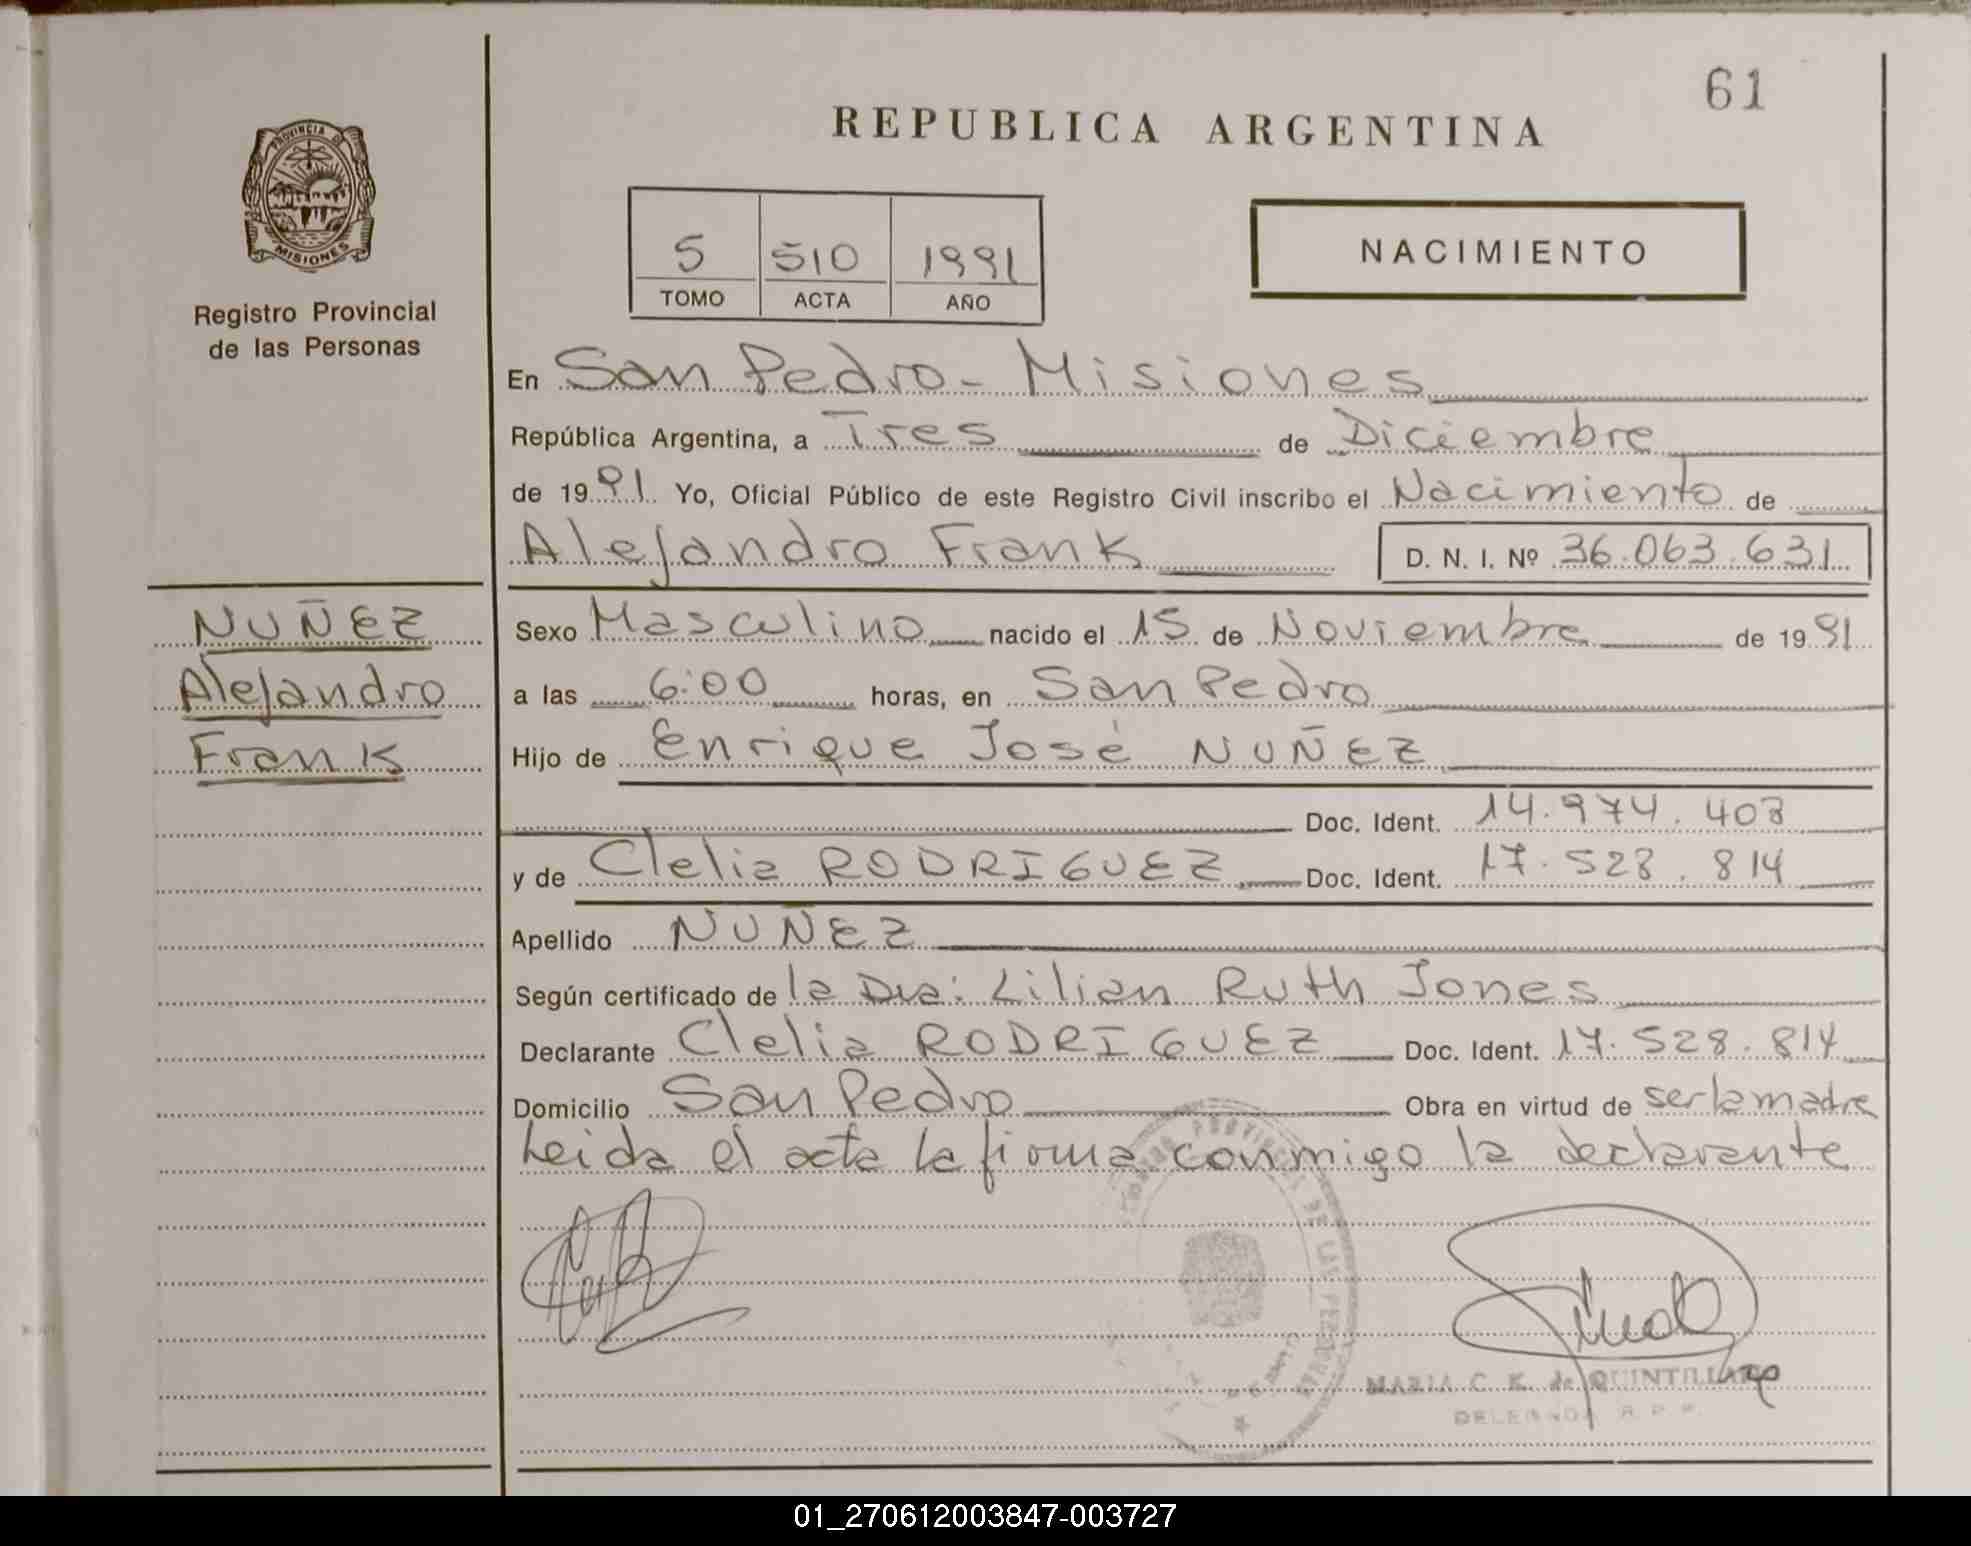 61
REPUBLICA ARGENTINA
PROVINCIA DE
MISIONES
Registro Provincial
de las Personas
5 510 1991
TOMO ACTA AÑO
NACIMIENTO
En San Pedro - Misiones
República Argentina, a Tres de Diciembre
de 1991 Yo, Oficial Público de este Registro Civil inscribo el Nacimiento de
Alejandro Frank D. N. I. Nº 36.063.631
NUÑEZ
Alejandro
Frank
Sexo Masculino nacido el 15 de Noviembre de 1991
a las 6:00 horas, en San Pedro
Hijo de Enrique José NUÑEZ
Doc. Ident. 14.974.403
y de Clelia RODRIGUEZ Doc. Ident. 17.528.814
Apellido NUÑEZ
Según certificado de la Dra: Lilian Ruth Jones
Declarante Clelia RODRIGUEZ Doc. Ident. 17.528.814
Domicilio San Pedro Obra en virtud de ser la madre
Leida el acta la firma conmigo la declarante
MARIA C. K. de QUINTILLA
DELEGADA R. P. P.
01_270612003847-003727